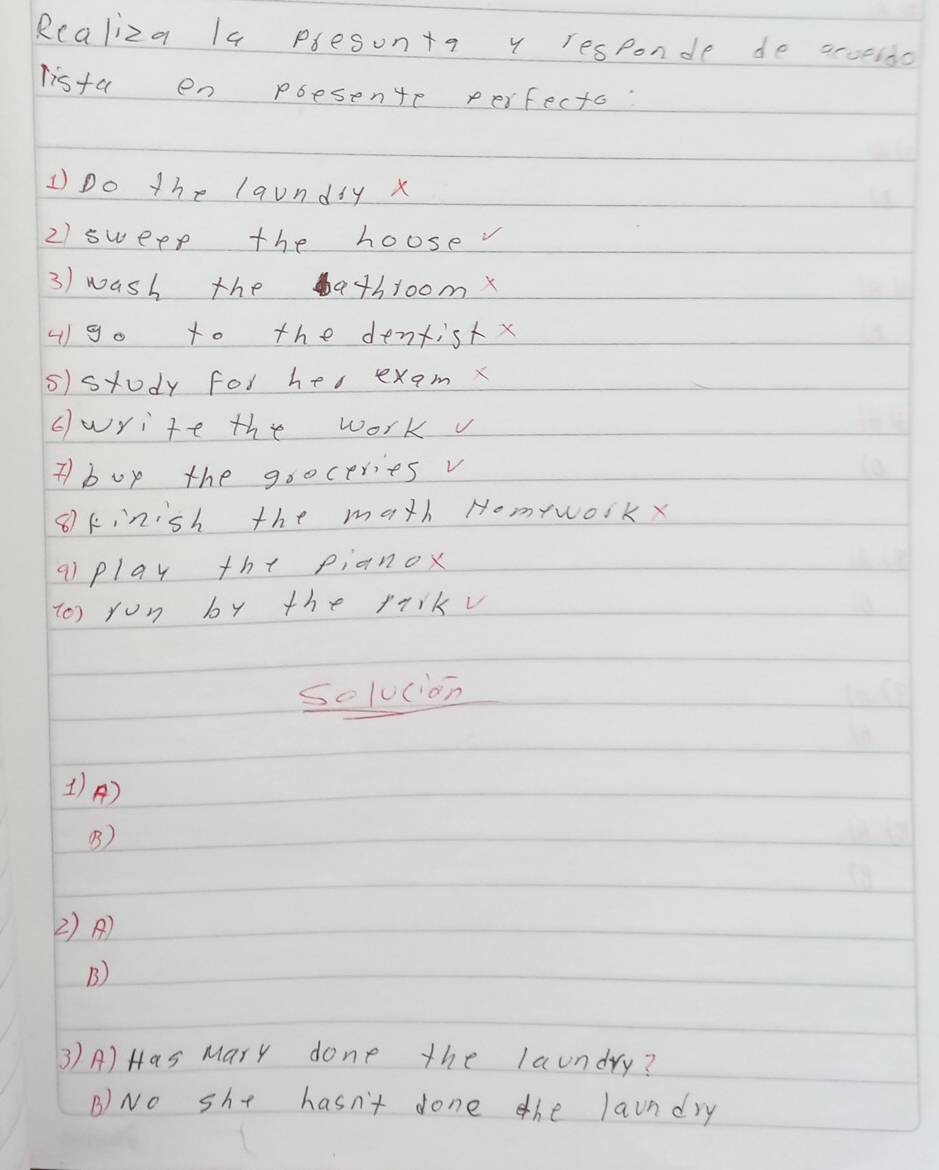 Realiza la presunta y responde de acuerdo
lista en presente perfecto:
1) Do the laundry x
2) sweep the hoose ✓
3) wash the bathroom x
4) go to the dentist x
5) study for her exam x
6) write the work ✓
7) buy the groceries ✓
8) Finish the math Homework x
9) play the piano x
10) run by the park ✓
Solución
1) A)
B)
2) A)
B)
3) A) Has Mary done the laundry?
B) No she hasn't done the laundry